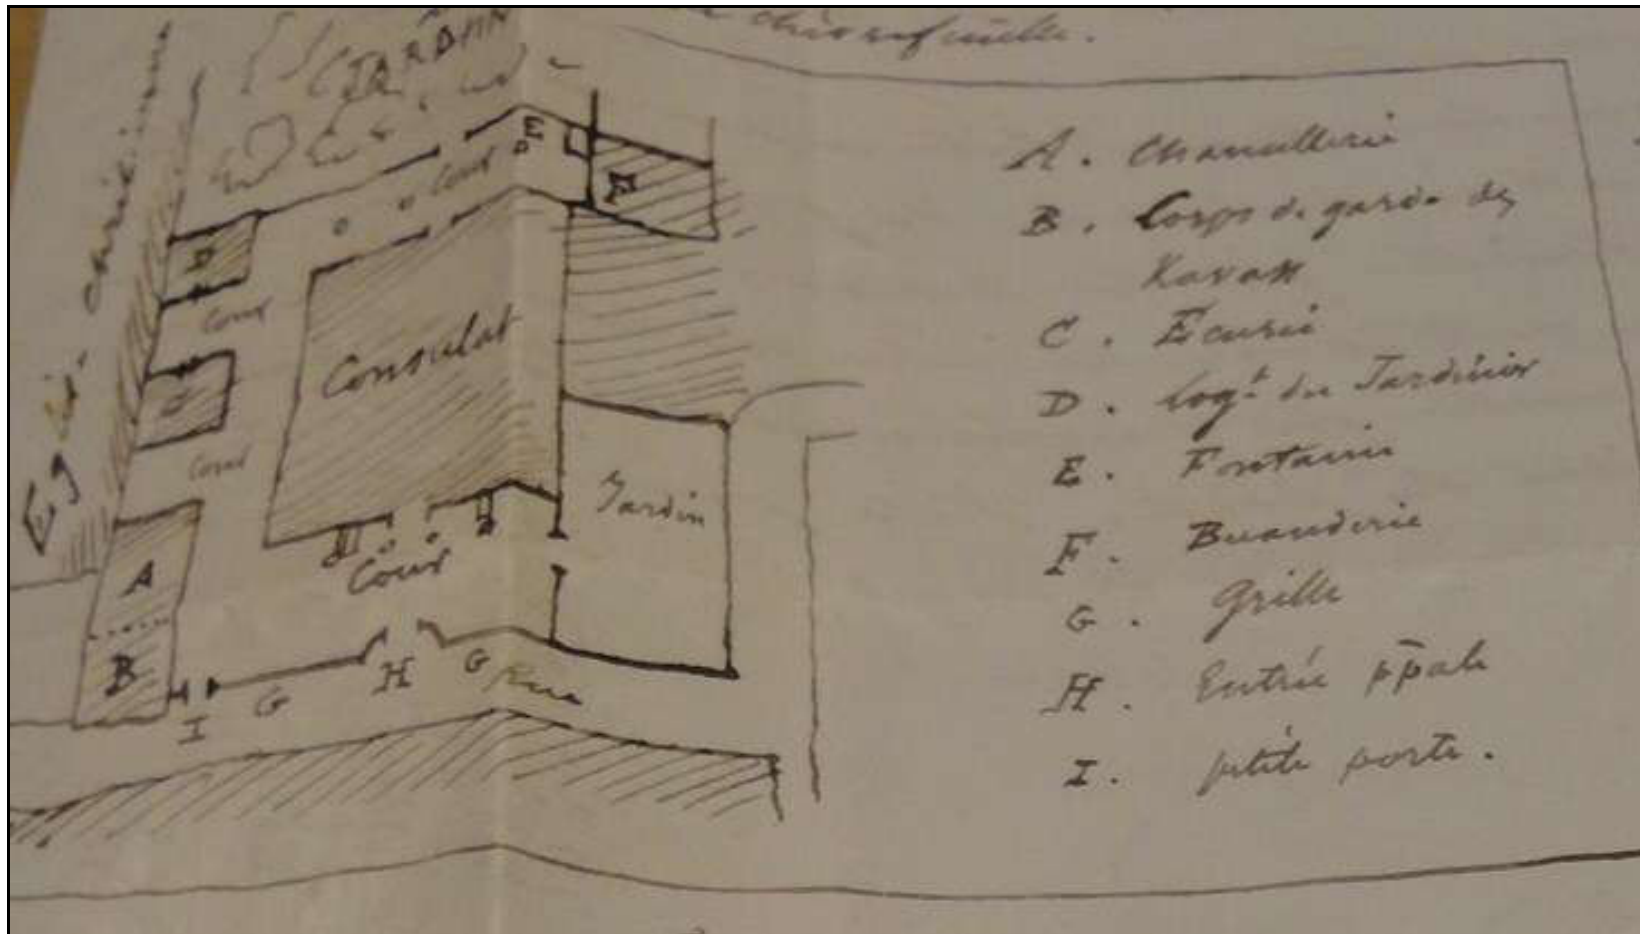 JARDIN
Cour
E
F
D
Cour
C
Consulat
Cour
Jardin
Cour
A
B
I
G
H
G
Rue
A. Chancellerie
B. Corps de garde des
Kavass
C. Écurie
D. Logt du Jardinier
E. Fontaine
F. Buanderie
G. Grille
H. Entrée ppale
I. petite porte.